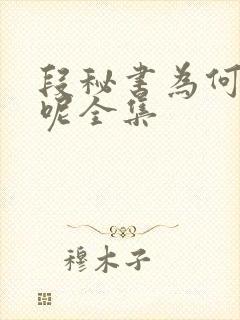 段秘书为何
呢全集
穆木子